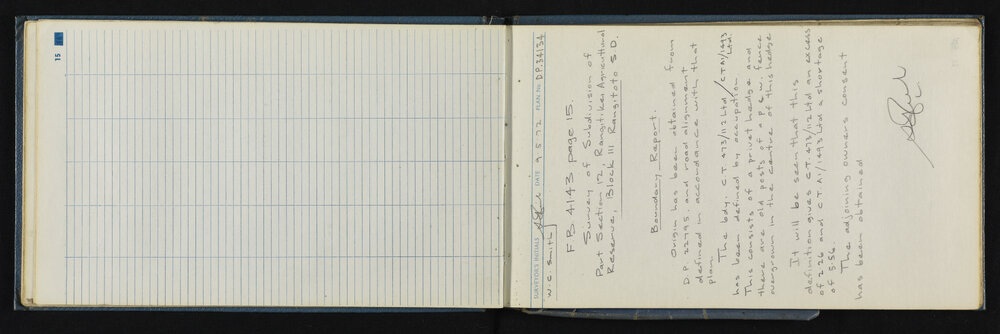 15
SURVEYOR'S INITIALS DATE 9.5.72 PLAN No D.P. 34134
W. C. Smith
FB 4143 page 15.
Survey of Subdivision of
Part Section 12, Rangitikei Agricultural
Reserve, Block III Rangitoto S D.
Boundary Report.
Origin has been obtained from
D.P. 22795. and road alignment
defined in accordance with that
plan.
The bdy. C.T 473/112 Ltd / C T A1/1493 Ltd.
has been defined by occupation
This consists of a privet hedge and
there are old posts of a p & w. fence
overgrown in the centre of this hedge
It will be seen that this
definition gives C.T 473/112 Ltd an excess
of 2.26 and C T A1/1493 Ltd a shortage
of 5.56.
The adjoining owners consent
has been obtained